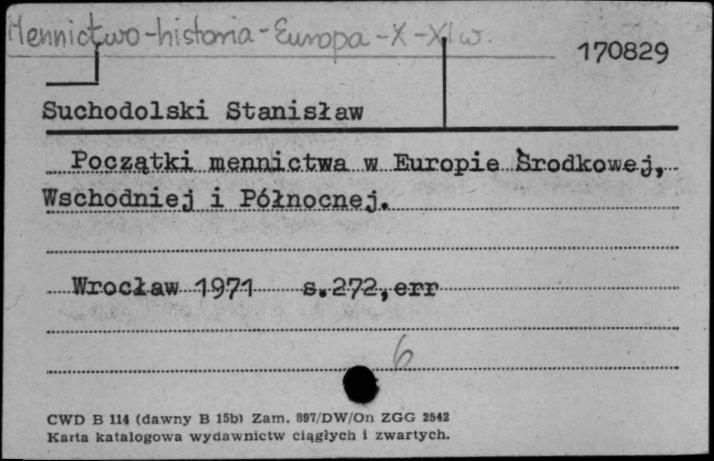 Mennictwo-historia-Europa-X-XI w.
170829
Suchodolski Stanisław
Początki mennictwa w Europie Środkowej,
Wschodniej i Północnej.
Wrocław 1971 s.272,err
6
CWD B 114 (dawny B 15b) Zam. 897/DW/On ZGG 2542
Karta katalogowa wydawnictw ciągłych i zwartych.